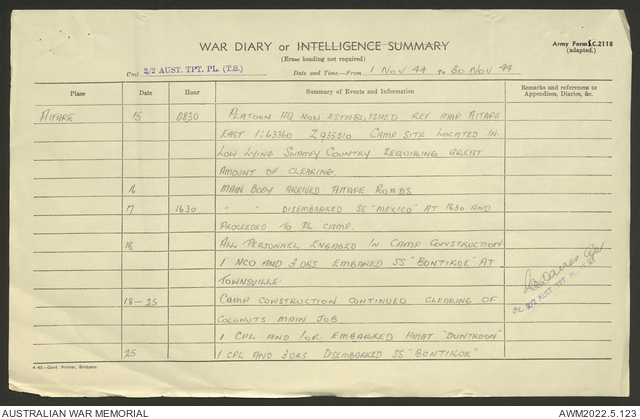 WAR DIARY or INTELLIGENCE SUMMARY
(Erase heading not required)
Army Form C.2118
(adapted.)
Unit 2/2 AUST. TPT. PL. (T.S.) Date and Time—From 1 NOV 44 to 30 NOV 44
Place Date Hour Summary of Events and Information Remarks and references to
Appendices, Diaries, &c.
AITAPE 15 0830 PLATOON HQ NOW ESTABLISHED REF MAP AITAPE
EAST 1:63360 Z935510 CAMP SITE LOCATED IN
LOW LYING SWAMPY COUNTRY REQUIRING GREAT
AMOUNT OF CLEARING.
16 MAIN BODY ARRIVED AITAPE ROADS
17 1630 " " DISEMBARKED SS "MEXICO" AT 1630 AND
PROCEEDED TO PL CAMP.
18 ALL PERSONNEL ENGAGED IN CAMP CONSTRUCTION
1 NCO AND 3 ORS EMBARKED SS "BONTIKOE" AT
TOWNSVILLE
18-25 CAMP CONSTRUCTION CONTINUED. CLEARING OF
COCONUTS MAIN JOB.
1 CPL AND 1 OR. EMBARKED HMAT "DUNTROON"
25 1 CPL AND 3 ORS DISEMBARKED SS "BONTIKOE"
Capt
OC 2/2 AUST. TPT. PL.
4-43—Govt. Printer, Brisbane.
AUSTRALIAN WAR MEMORIAL AWM2022.5.123